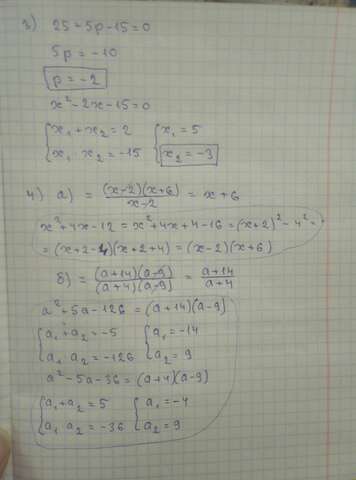 3) 25+5p-15=0
5p = -10
p = -2
x²-2x-15=0
{x₁+x₂=2 {x₁=5
{x₁ x₂=-15 {x₂=-3
4) a) = (x-2)(x+6)/x-2 = x+6
x²+4x-12 = x²+4x+4-16=(x+2)²-4²=
=(x+2-4)(x+2+4)=(x-2)(x+6)
б) = (a+14)(a-9)/(a+4)(a-9) = a+14/a+4
a²+5a-126=(a+14)(a-9)
{a₁+a₂=-5 {a₁=-14
{a₁ a₂=-126 {a₂=9
a²-5a-36=(a+4)(a-9)
{a₁+a₂=5 {a₁=-4
{a₁ a₂=-36 {a₂=9